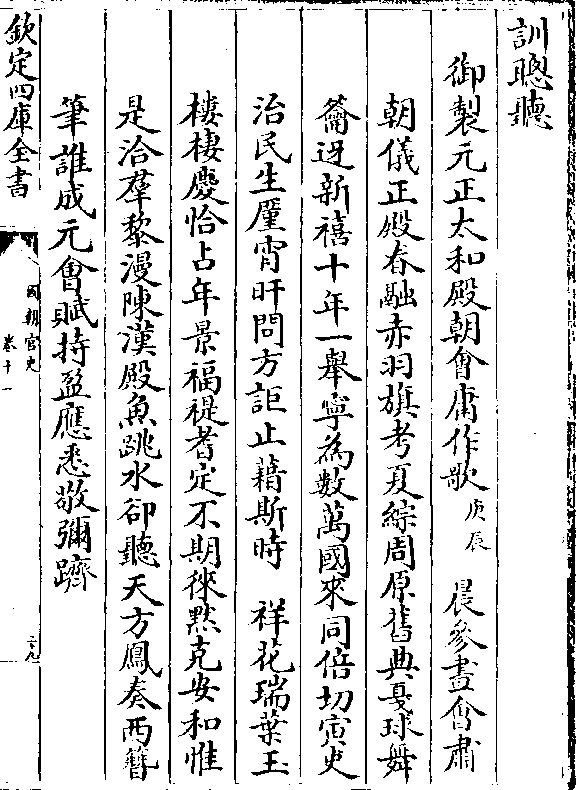 訓聰聽
御製元正太和殿朝會庸作歌 庚辰 晨參晝會肅
朝儀正殿春融赤羽旗考夏綜周原舊典戛球舞
籥迓新禧十年一舉寧為數萬國來同倍切寅吏
治民生廑宵旰問方詎止藉斯時 祥花瑞葉玉
棲棲慶恰占年景福禔耆定不期徠黙克安和惟
是洽羣黎漫陳漢殿魚跳水卻聽天方鳳奏西簪
筆誰成元會賦持盈應悉敬彌躋
欽定四庫全書
國朝宮史
卷十一